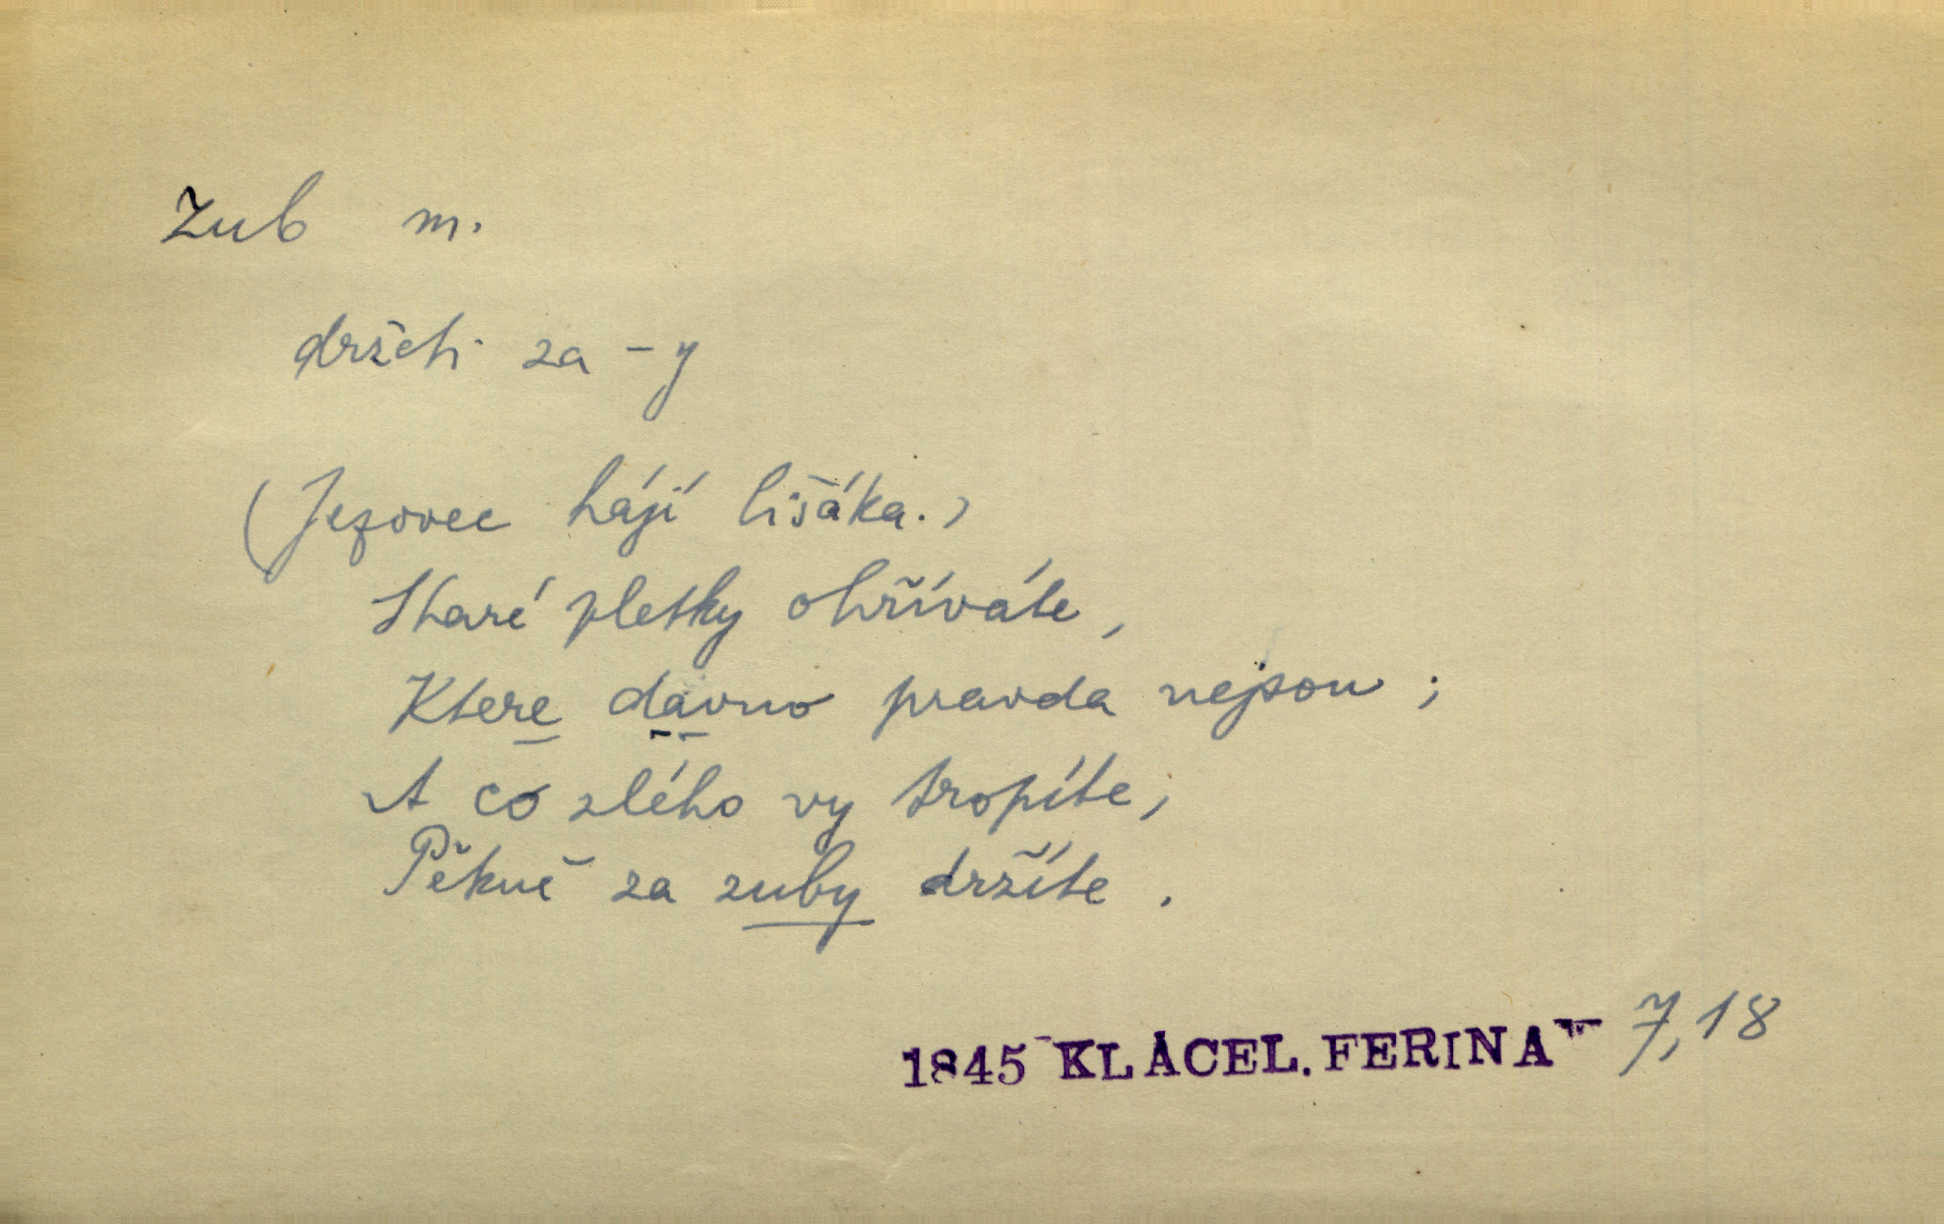 Zub m.
držeti za -y
(Jezovec hájí lišáka.)
Staré pletky ohříváte,
Ktere davno pravda nejsou;
A co zlého vy tropíte,
Pěkně za zuby držíte.
1845 KLÁCEL. FERINA 7,18